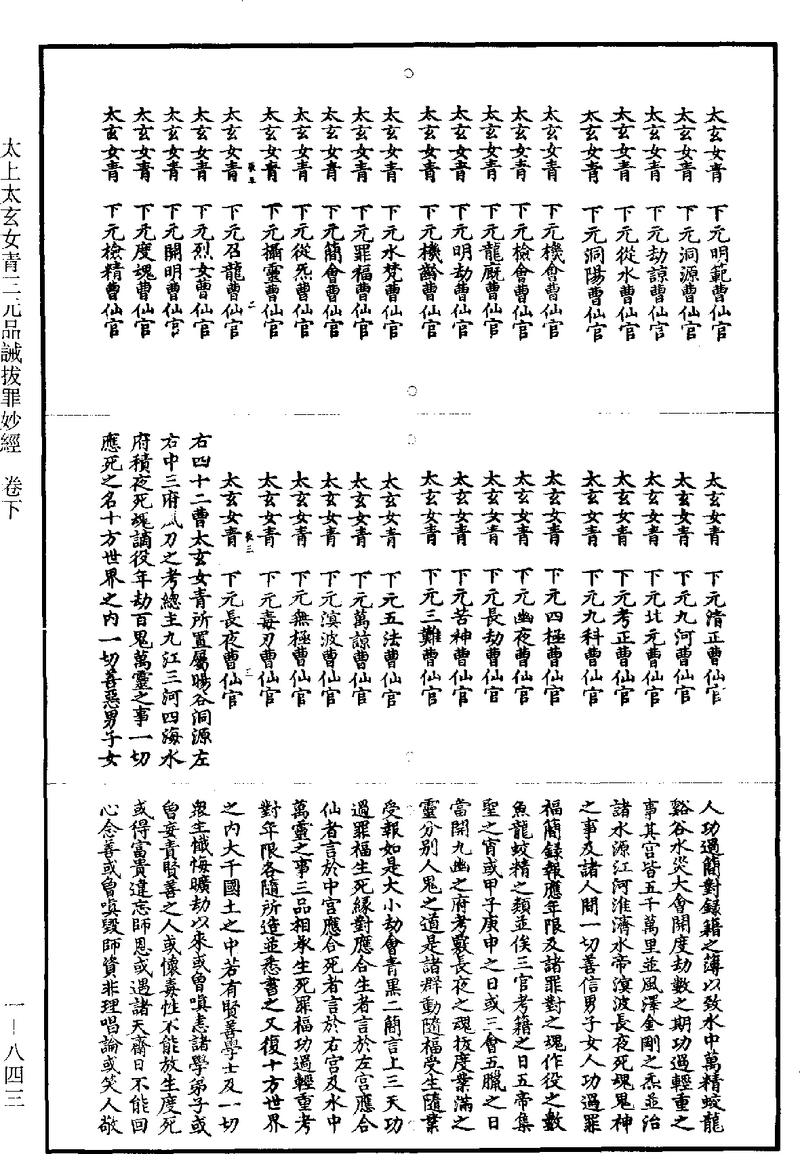 太玄女青　下元明範曹仙官
太玄女青　下元洞源曹仙官
太玄女青　下元劫諒曹仙官
太玄女青　下元從水曹仙官
太玄女青　下元洞陽曹仙官
太玄女青　下元機會曹仙官
太玄女青　下元檢會曹仙官
太玄女青　下元龍廐曹仙官
太玄女青　下元明劫曹仙官
太玄女青　下元機齡曹仙官
太玄女青　下元水梵曹仙官
太玄女青　下元罪福曹仙官
太玄女青　下元簡會曹仙官
太玄女青　下元從炁曹仙官
太玄女青　下元攝靈曹仙官
張五　二
太玄女青　下元召龍曹仙官
太玄女青　下元烈女曹仙官
太玄女青　下元開明曹仙官
太玄女青　下元度魂曹仙官
太玄女青　下元檢精曹仙官
太玄女青　下元清正曹仙官
太玄女青　下元九河曹仙官
太玄女青　下元北元曹仙官
太玄女青　下元考正曹仙官
太玄女青　下元九科曹仙官
太玄女青　下元四極曹仙官
太玄女青　下元幽夜曹仙官
太玄女青　下元長劫曹仙官
太玄女青　下元苦神曹仙官
太玄女青　下元三難曹仙官
太玄女青　下元五法曹仙官
太玄女青　下元萬諒曹仙官
太玄女青　下元溟波曹仙官
太玄女青　下元無極曹仙官
太玄女青　下元毒刃曹仙官
張三　二
太玄女青　下元長夜曹仙官
右四十二曹太玄女青所置屬暘谷洞源左
右中三府風刀之考總主九江三河四海水
府積夜死魂謫役年劫百鬼萬靈之事一切
應死之名十方世界之內一切善惡男子女
人功過簡對錄籍之簿以致水中萬精蛟龍
谿谷水災大會開度劫數之期功過輕重之
事其宮皆五千萬里並風澤金剛之炁並治
諸水源江河淮濟水帝溟波長夜死魂鬼神
之事及諸人間一切善信男子女人功過罪
福簡錄報應年限及諸罪對之魂作役之數
魚龍蛟精之類並俟三官考籍之日五帝集
聖之宵或甲子庚申之日或三會五臘之日
當開九幽之府考覈長夜之魂拔度業滿之
靈分別人鬼之道是諸群動隨福受生隨業
受報如是大小劫會青黑二簡言上三天功
過罪福生死緣對應合生者言於左宮應合
仙者言於中宮應合死者言於右宮及水中
萬靈之事三品相承生死罪福功過輕重考
對年限各隨所造並悉書之又復十方世界
之內大千國土之中若有賢善學士及一切
衆生懺悔曠劫以來或曾嗔恚諸學弟子或
曾妄責賢善之人或懷毒性不能放生度死
或得富貴違忘師恩或遇諸天齋日不能回
心念善或曾嗔毀師資非理唱論或笑人敬
太上太玄女青三元品誡拔罪妙經　卷下
一－八四三